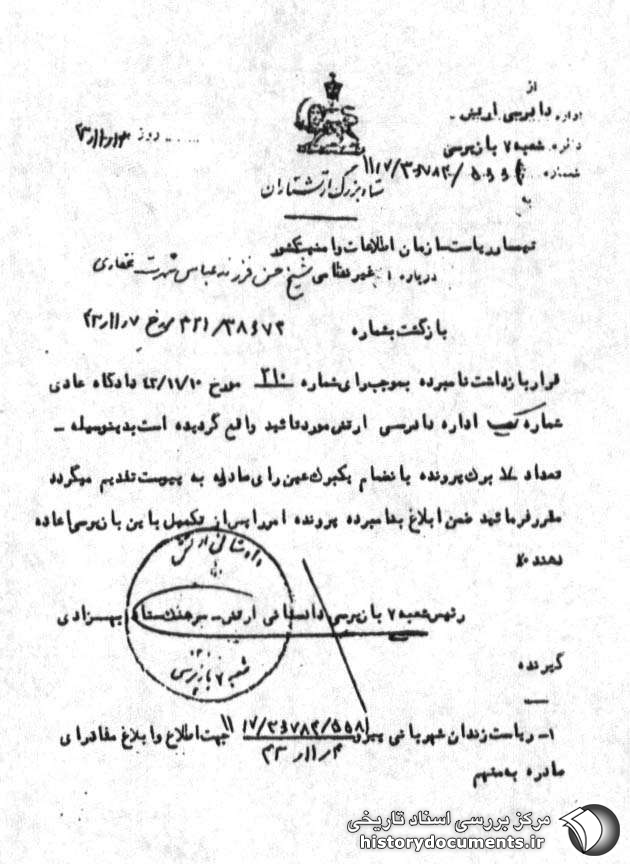 از
اداره دادرسی ارتش -
دائره شعبه ۷ بازپرسی
شماره
به
روز
شاه بزرگ ارتشتاران
تیمسار ریاست سازمان اطلاعات و امنیت کشور
درباره : غیرنظامی شیخ حسن فرزند عباس شهرت غفاری
بازگشت بشماره ۳۲۱/۳۸۶۷۲ مورخ ۴۳/۱۱/۷
قرار بازداشت نامبرده بموجب رای شماره ۳۱۰ مورخ ۴۳/۱۱/۱۰ دادگاه عادی
شماره یک اداره دادرسی ارتش مورد تائید واقع گردیده است بدینوسیله -
تعداد برگ پرونده با نضمام یکبرگ عین رای صادره به پیوست تقدیم میگردد
مقرر فرمائید ضمن ابلاغ بنامبرده پرونده امر را پس از تکمیل باین بازپرسی اعاده
دهند
دادستانی ارتش
رئیس شعبه ۷ بازپرسی دادستانی ارتش - سرهنگ ستاد بهزادی
شعبه ۷ بازپرسی
گیرنده
۱- ریاست زندان شهربانی پیرو جهت اطلاع و ابلاغ مفاد رای
صادره به متهم
مرکز بررسی اسناد تاریخی
historydocuments.ir